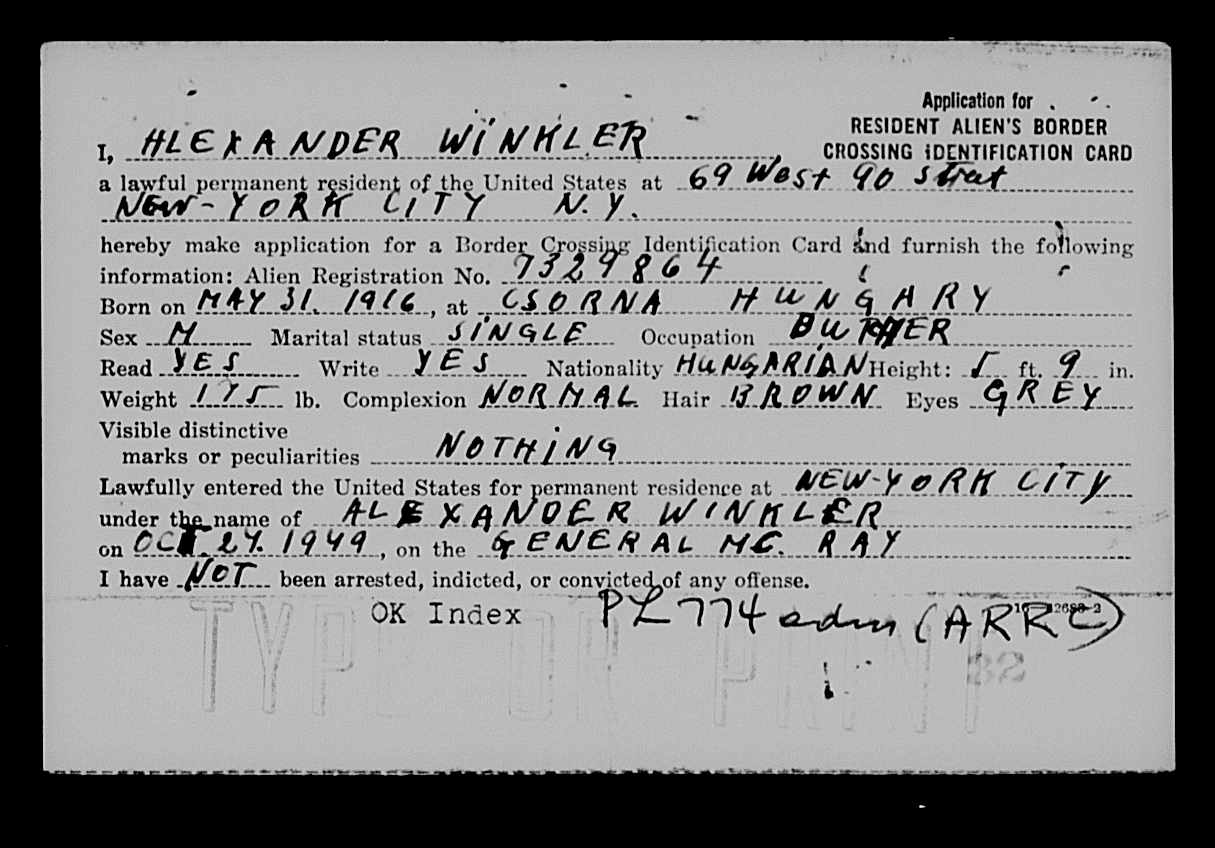 Application for
RESIDENT ALIEN'S BORDER
CROSSING IDENTIFICATION CARD
I, ALEXANDER WINKLER,
a lawful permanent resident of the United States at 69 West 90 street
NEW-YORK CITY N.Y.
hereby make application for a Border Crossing Identification Card and furnish the following
information: Alien Registration No. 7329864
Born on MAY 31. 1916, at CSORNA HUNGARY
Sex M Marital status SINGLE Occupation
Read YES Write YES Nationality HUNGARIAN Height: 5 ft. 9 in.
Weight 175 lb. Complexion NORMAL Hair BROWN Eyes GREY
Visible distinctive
marks or peculiarities NOTHING
Lawfully entered the United States for permanent residence at NEW-YORK CITY
under the name of ALEXANDER WINKLER
on OCT. 27. 1949, on the GENERAL MC. RAY
I have NOT been arrested, indicted, or convicted of any offense.
OK Index PL 774 adm (ARRC)
TYPE OR PRINT
32